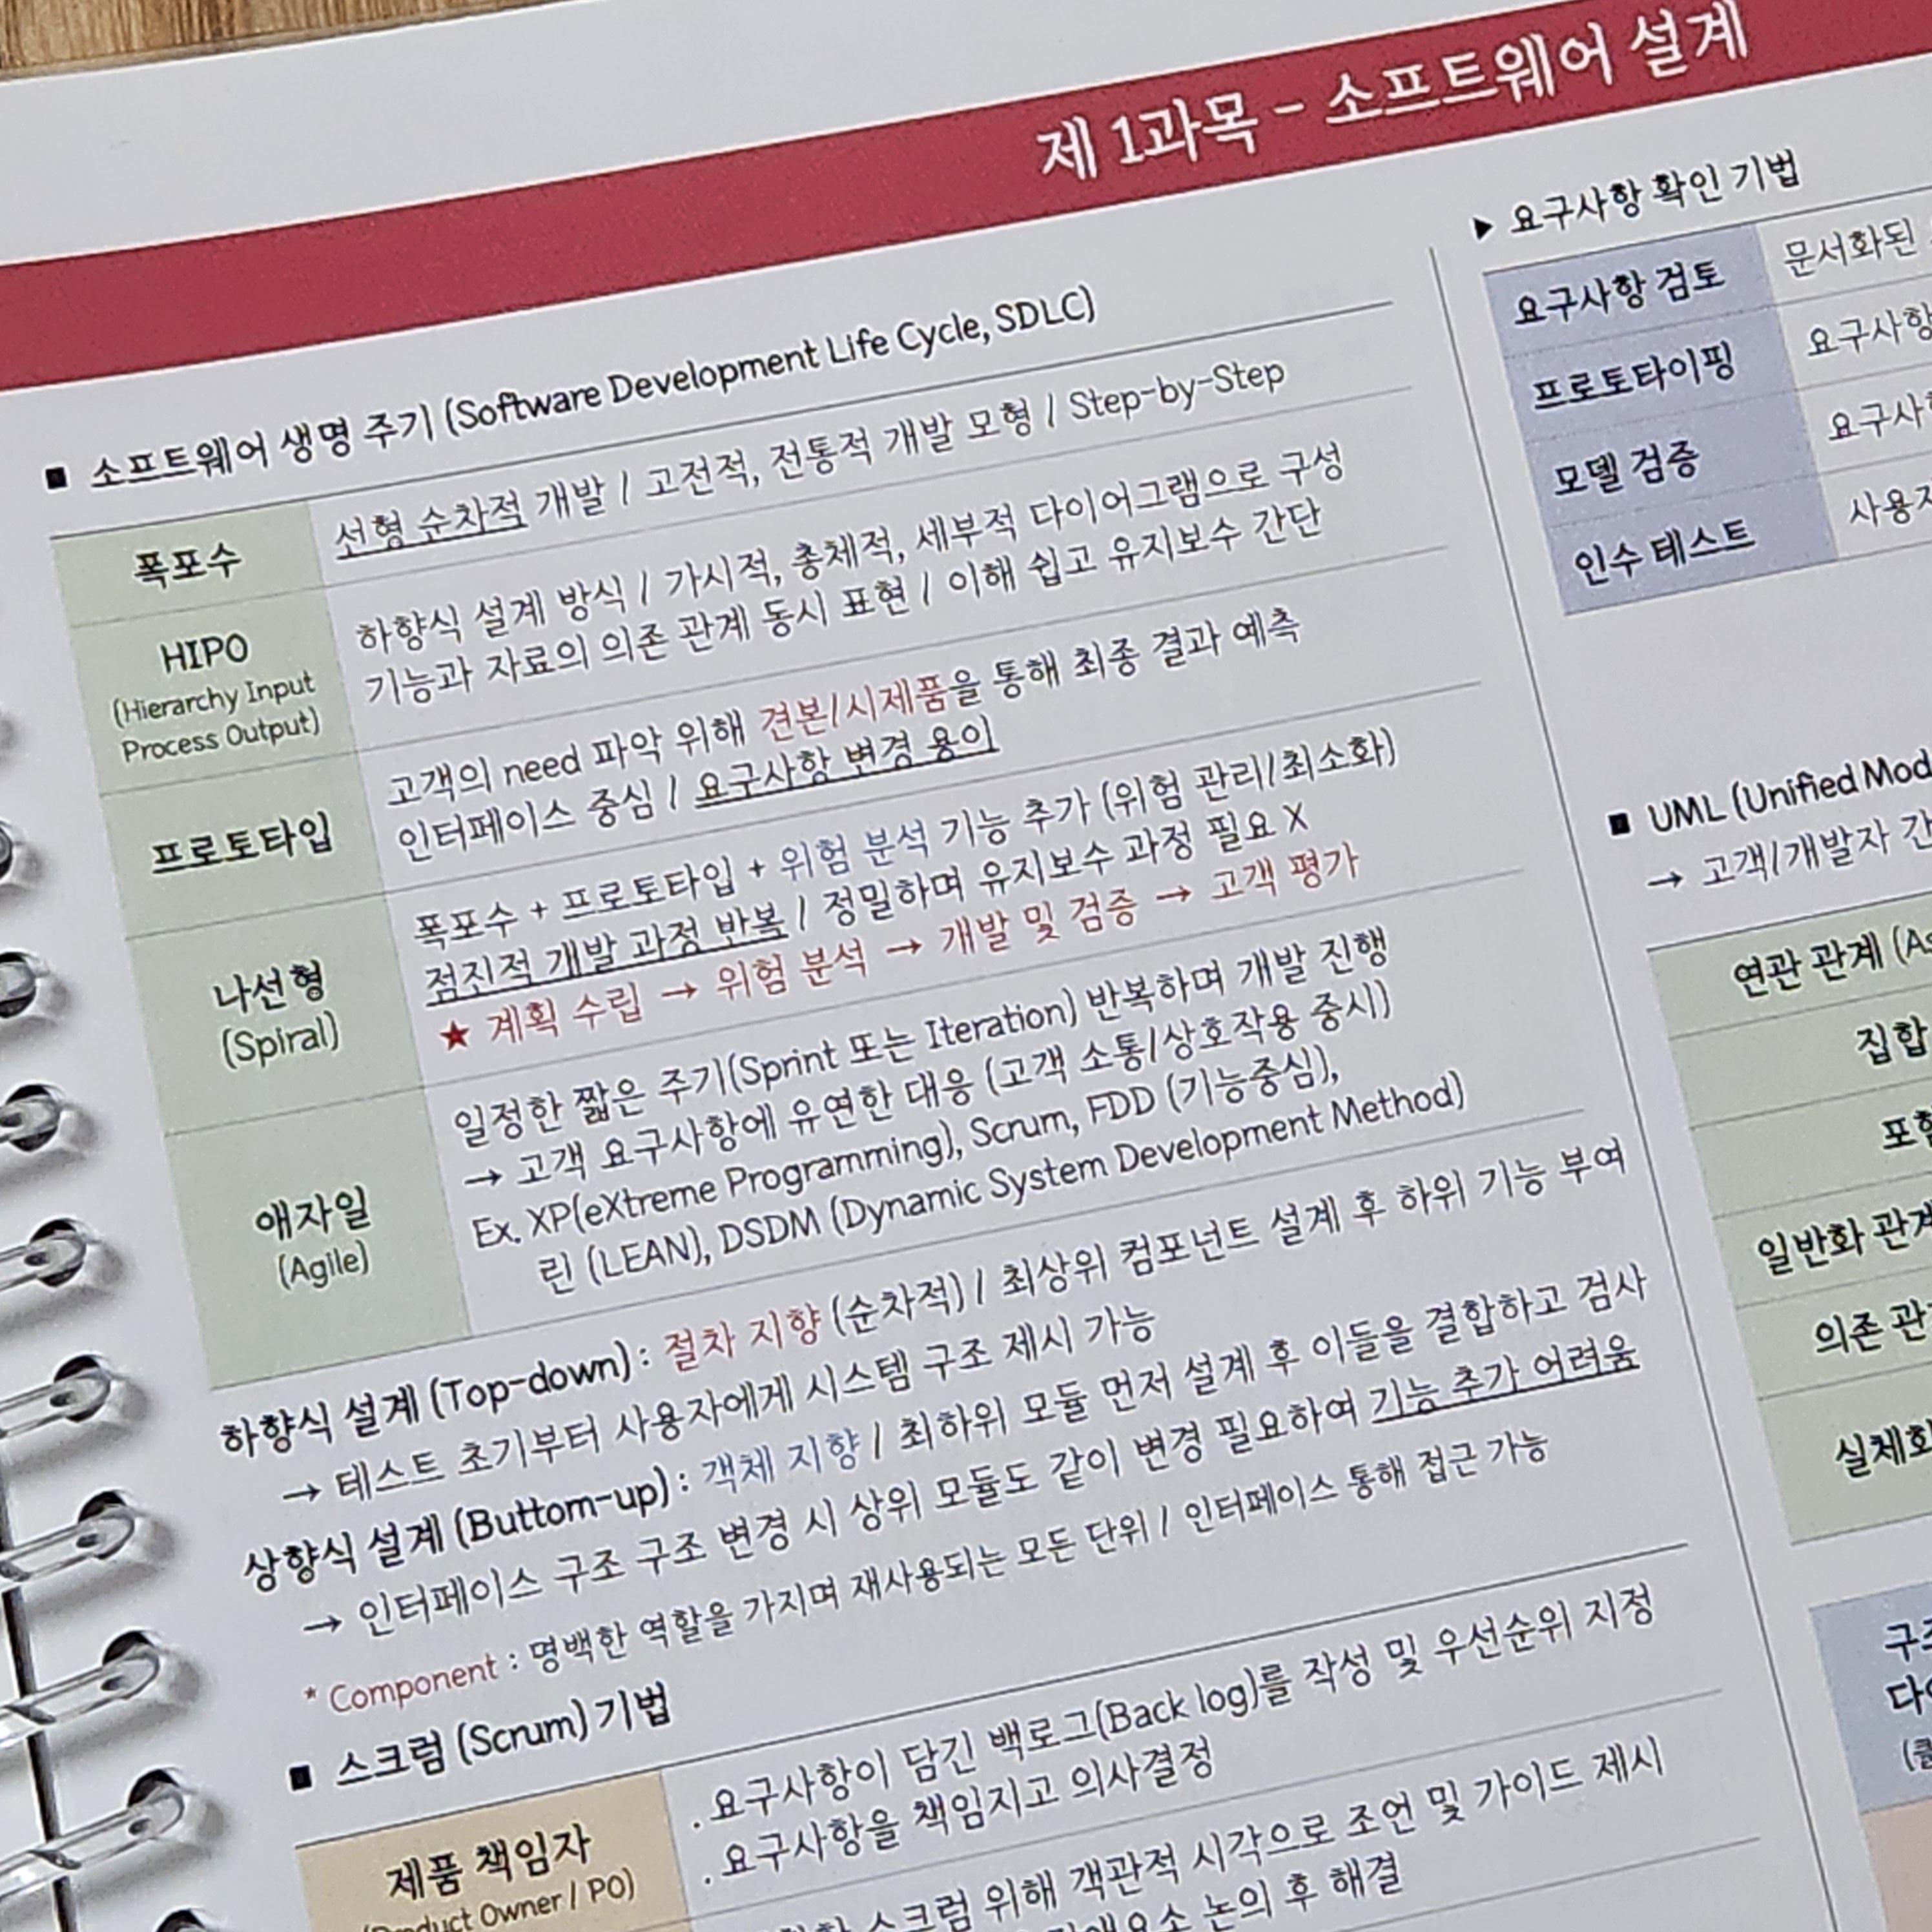 제 1과목 - 소프트웨어 설계
■ 소프트웨어 생명 주기 (Software Development Life Cycle, SDLC)
폭포수
선형 순차적 개발 / 고전적, 전통적 개발 모형 / Step-by-Step
HIPO
(Hierarchy Input
Process Output)
하향식 설계 방식 / 가시적, 총체적, 세부적 다이어그램으로 구성
기능과 자료의 의존 관계 동시 표현 / 이해 쉽고 유지보수 간단
프로토타입
고객의 need 파악 위해 견본/시제품을 통해 최종 결과 예측
인터페이스 중심 / 요구사항 변경 용이
나선형
(Spiral)
폭포수 + 프로토타입 + 위험 분석 기능 추가 (위험 관리/최소화)
점진적 개발 과정 반복 / 정밀하며 유지보수 과정 필요 X
★ 계획 수립 → 위험 분석 → 개발 및 검증 → 고객 평가
애자일
(Agile)
일정한 짧은 주기(Sprint 또는 Iteration) 반복하며 개발 진행
→ 고객 요구사항에 유연한 대응 (고객 소통/상호작용 중시)
Ex. XP(eXtreme Programming), Scrum, FDD (기능중심),
린 (LEAN), DSDM (Dynamic System Development Method)
하향식 설계 (Top-down) : 절차 지향 (순차적) / 최상위 컴포넌트 설계 후 하위 기능 부여
→ 테스트 초기부터 사용자에게 시스템 구조 제시 가능
상향식 설계 (Buttom-up) : 객체 지향 / 최하위 모듈 먼저 설계 후 이들을 결합하고 검사
→ 인터페이스 구조 구조 변경 시 상위 모듈도 같이 변경 필요하여 기능 추가 어려움
* Component : 명백한 역할을 가지며 재사용되는 모든 단위 / 인터페이스 통해 접근 가능
■ 스크럼 (Scrum) 기법
제품 책임자
(Product Owner / PO)
. 요구사항이 담긴 백로그(Back log)를 작성 및 우선순위 지정
. 요구사항을 책임지고 의사결정
스크럼 위해 객관적 시각으로 조언 및 가이드 제시
논의 후 해결
▶ 요구사항 확인 기법
요구사항 검토
문서화된
프로토타이핑
요구사항
모델 검증
인수 테스트
■ UML (Unified
→ 고객/개발자
연관 관계
집합
일반화
의존